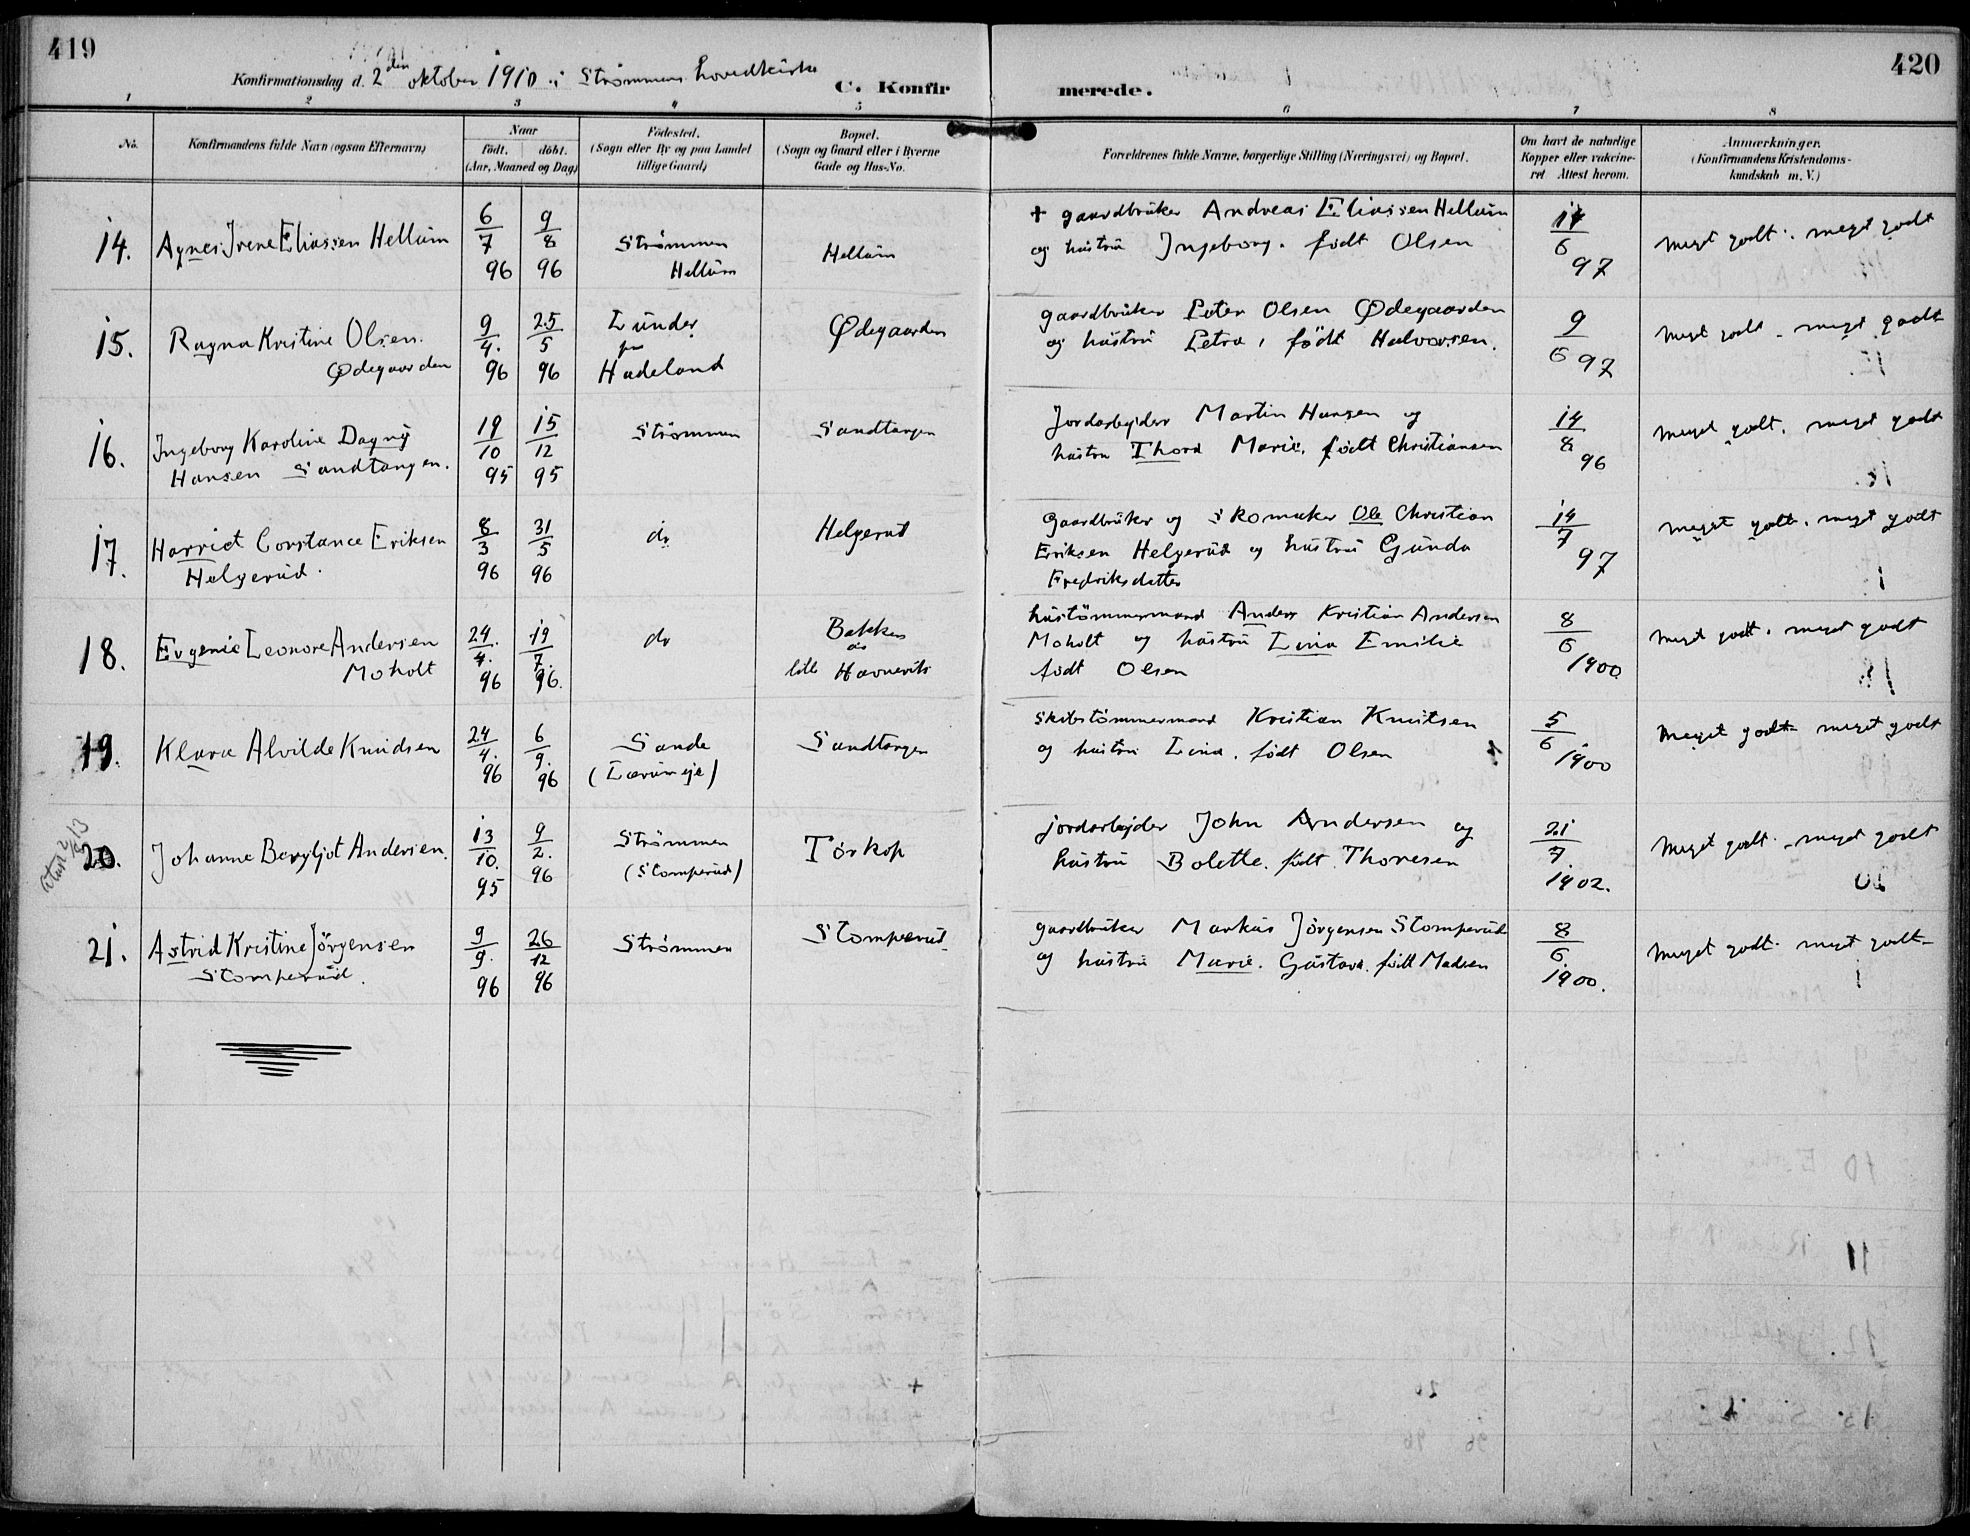 419
420
Konfirmationsdag d. 2den oktober 1910 i Strømmens hovedkirke
C. Konfirmerede.
1 2 3 4 5 6 7 8
No.
Konfirmandens fulde Navn (ogsaa Efternavn)
Naar
født. døbt.
(Aar, Maaned og Dag)
Fødested.
(Sogn eller By og paa Landet
tillige Gaard)
Bopæl.
(Sogn og Gaard eller i Byerne
Gade og Hus-No.
Forældrenes fulde Navne, borgerlige Stilling (Næringsvei) og Bopæl.
Om havt de naturlige
Kopper eller vakcine-
ret Attest herom.
Anmærkninger.
(Konfirmandens Kristendoms-
kundskab m. V.)
14. Agnes Irene Eliassen Hellum
6/7 96
9/8 96
Strømmen
Hellum
Hellum
+ gaardbruker Andreas Eliassen Hellum
og hustru Ingeborg. født Olsen
14/6 97
meget godt. meget godt
15. Ragna Kristine Olsen.
Ødegaarden
9/4. 96
25/5 96
Lunder
paa
Hadeland
Ødegaarden
gaardbruker Peter Olsen Ødegaarden
og hustru Petra, født Halvorsen.
9/6 97
Meget godt - meget godt
16. Ingeborg Karoline Dagny
Hansen Sandtangen.
19/10 95
15/12 95
Strømmen
Sandtangen
Jordarbejder Martin Hansen og
hustru Thora Marie. født Christiansen
14/8 96
Meget godt. meget godt
17. Harriet Constance Eriksen
Helgerud.
8/3 96
31/5 96
do
Helgerud
Gaardbruker og skomaker Ole Christian
Eriksen Helgerud og hustru Gunda
Fredriksdatter
14/7 97
meget godt. meget godt
18. Evgenie Leonore Andersen
Moholt
24./4. 96
19/7. 96.
do
Bakken
lille Havnevik
hustømmermand Anders Kristian Andersen
Moholt og hustru Lina Emilie
født Olsen
8/6 1900
Meget godt. meget godt
19. Klara Alvilde Knudsen
24/4. 96
6/9. 96
Sande
(Lærum eje)
Sandtangen
Skibstømmermand Kristian Knutsen
og hustru Lina. født Olsen
5/6 1900
Meget godt - meget godt
20. Johanne Bergljot Andersen.
13/10. 95
9/2. 96
Strømmen
(Stomperud)
Torkop
jordarbejder John Andersen og
hustru Bolette. født. Thoresen
21/7. 1902.
Meget godt. meget godt
21. Astrid Kristine Jørgensen
Stomperud.
9/9. 96
26/12 96
Strømmen
Stomperud
gaardbruker Markus Jørgensen Stomperud
og hustru Marie. Gustava. født Madsen
8/6 1900.
Meget godt. meget godt